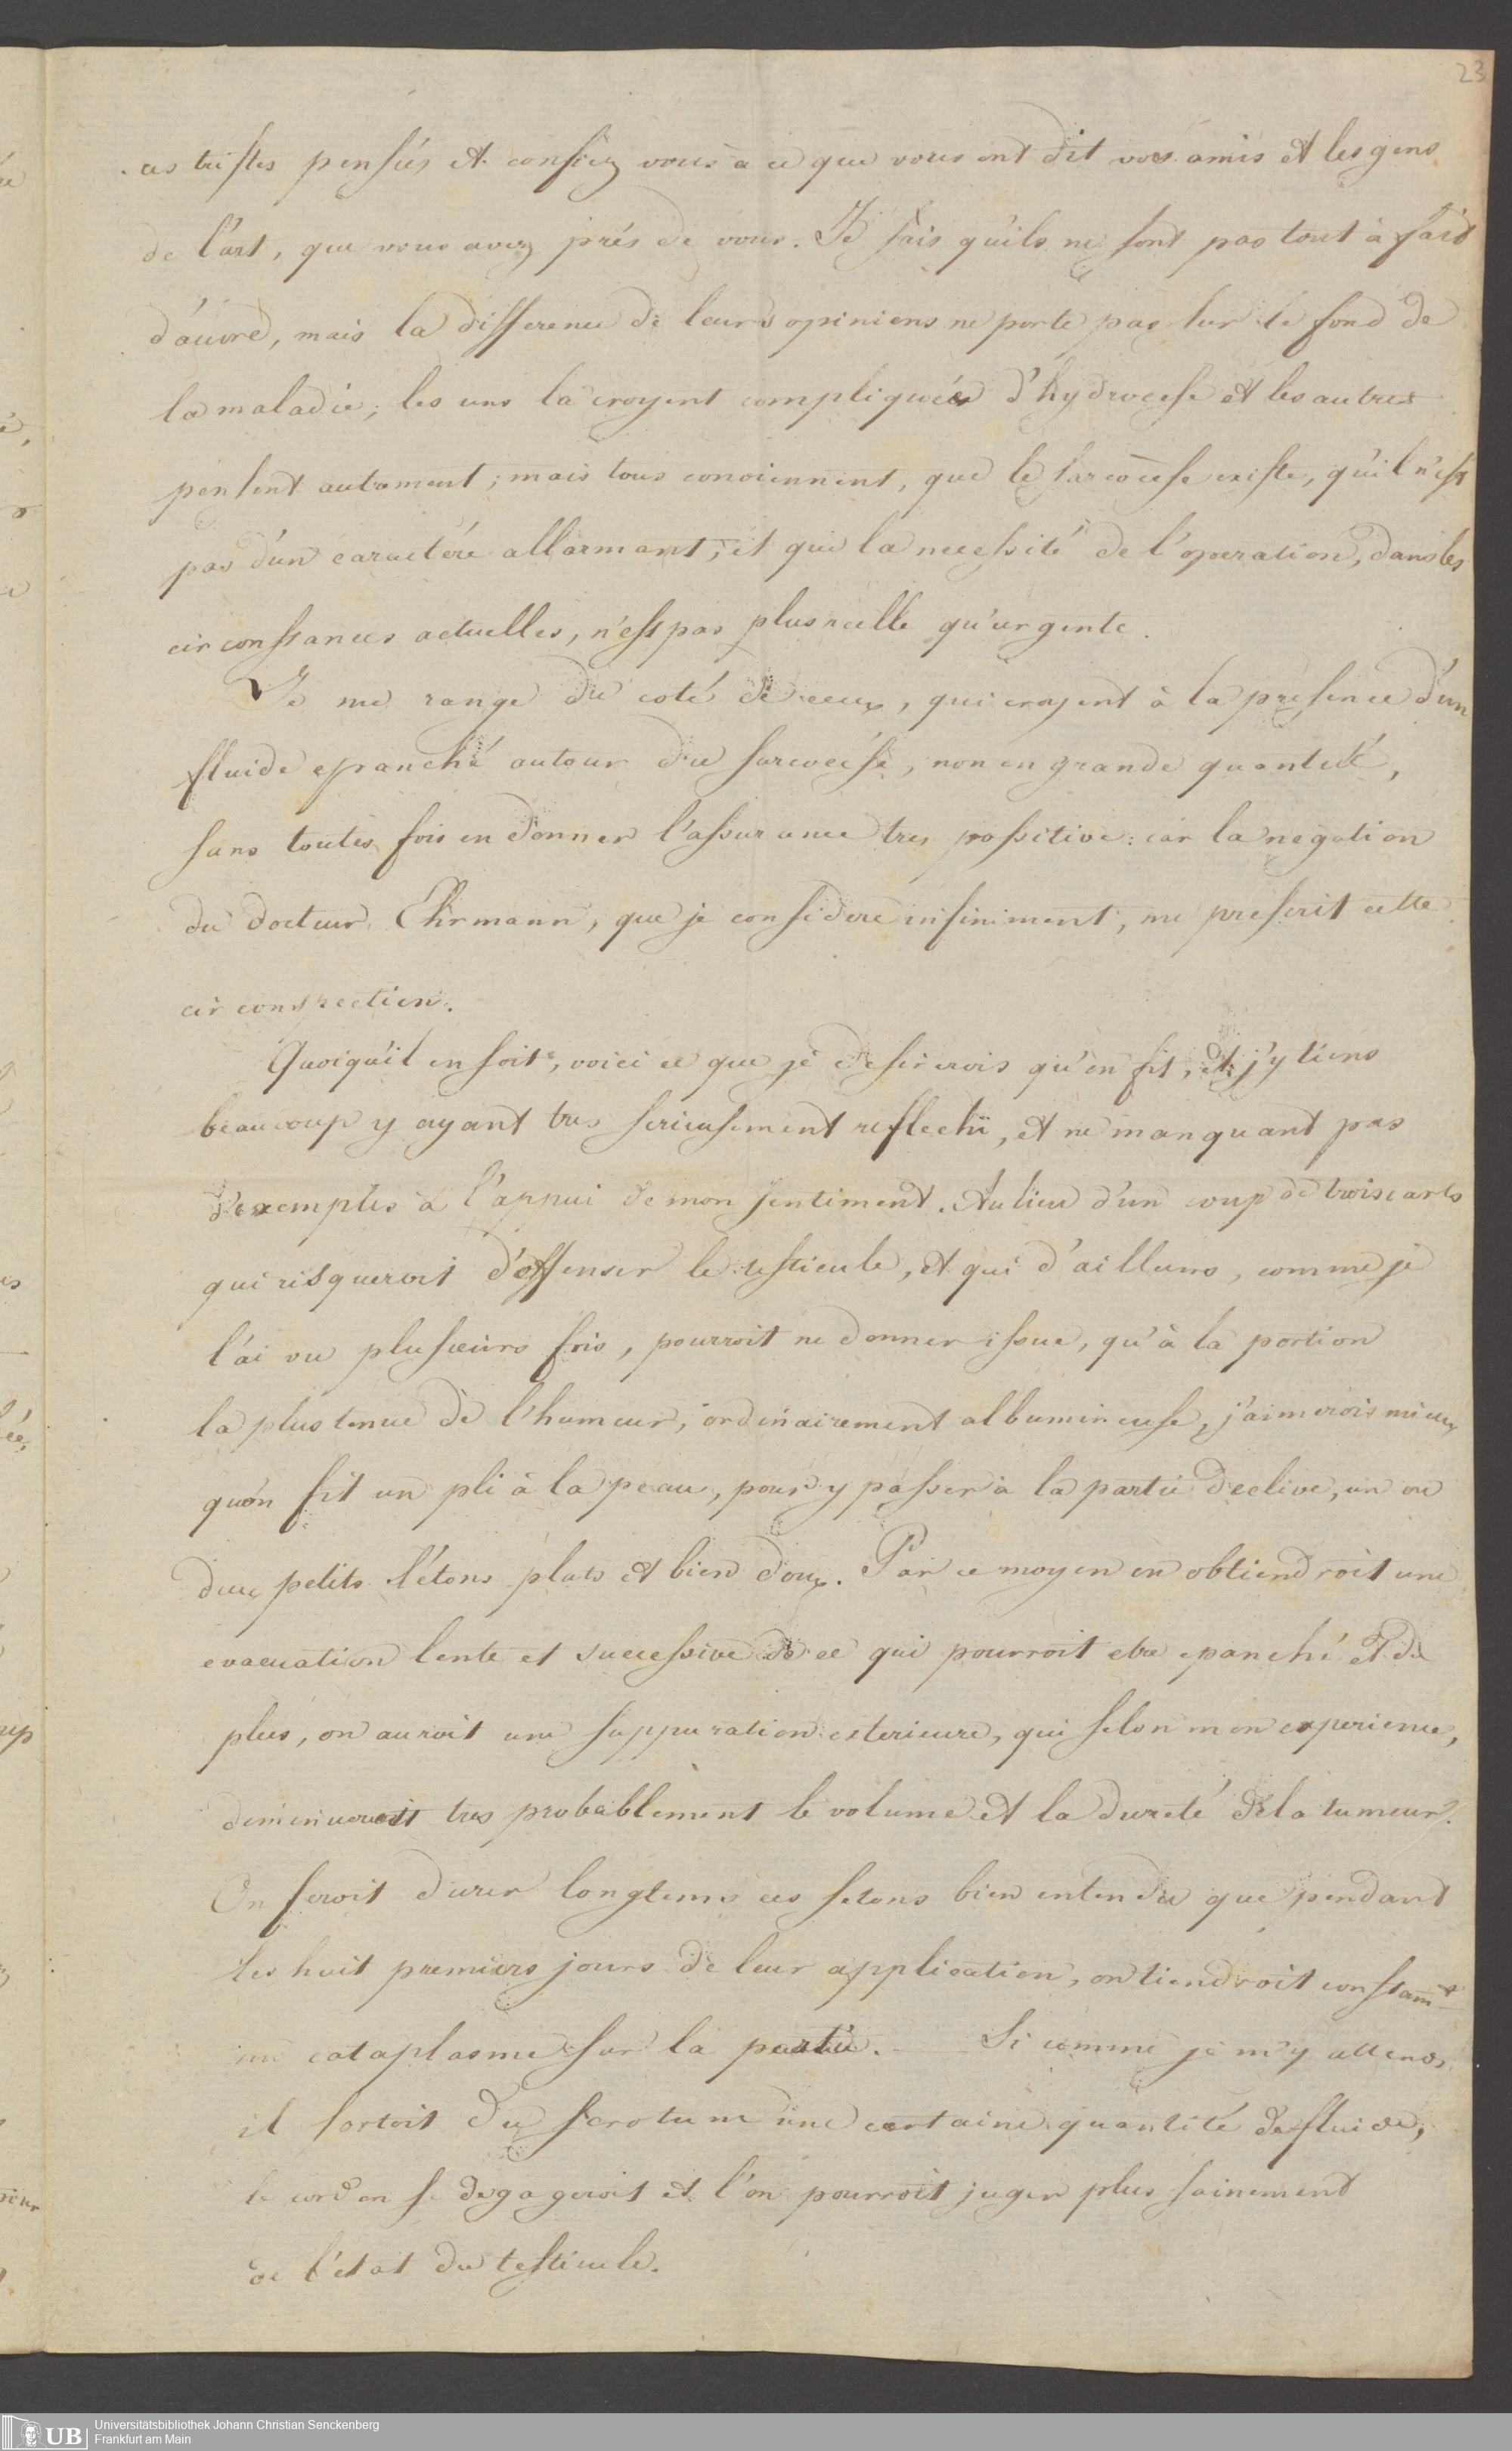 23
ces tristes pensées et confiez vous à ce que vous ont dit vos amis et les gens
de l'art, que vous avez prés de vous. Je sais qu'ils ne sont pas tout à fait
d'accord, mais la difference de leurs opinions ne porte pas sur le fond de
la maladie; les uns la croyent compliquée d'hydrocese et les autres
pensent autrement; mais tous conviennent, que le sarcocese existe, qu'il n'est
pas d'un caractére allarmant; et que la necessité de l'operation, dans les
circonstances actuelles, n'est pas plus réelle qu'urgente.
Je me range du coté de ceux, qui croyent à la presence d'un
fluide epanché autour du sarcocése, non en grande quantité,
sans toutes fois en donner l'assurance tres possitive: car la negation
du docteur Ehrmann, que je considere infiniment, me prescrit cette
circonspection.
Quoiqu'il en soit, voici ce que je desirerois qu'on fit, et j'y tiens
beaucoup y ayant tres serieusement reflechi, et ne manquant pas
d'exemples à l'appui de mon sentiment. Au lieu d'un coup de troiscarts
qui risqueroit d'offenser le testicule, et qui d'ailleurs, comme je
l'ai vu plusieurs fois, pourroit ne donner issue, qu'à la portion
la plus tenue de l'humeur, ordinairement albumineuse, j'aimerois mieux
qu'on fit un pli à la peau, pour y passer à la partie declive, un ou
deux petits sétons plats et bien doux. Par ce moyen on obtiendroit une
evacuation lente et successive de ce qui pourroit etre epanché et de
plus, on auroit une suppuration exterieure, qui selon mon experience,
diminueroit tres probablement le volume et la dureté de la tumeur.
On feroit durer longtems ces setons bien entendu que pendant
les huit premiers jours de leur application, on tiendroit constam̅t
un cataplasme sur la partie. — Si comme je m'y attends,
il sortoit du scrotum une certaine quantité de fluide,
le cordon se degageroit et l'on pourroit juger plus sainement
de l'etat du testicule.
Universitätsbibliothek Johann Christian Senckenberg
Frankfurt am Main
UB